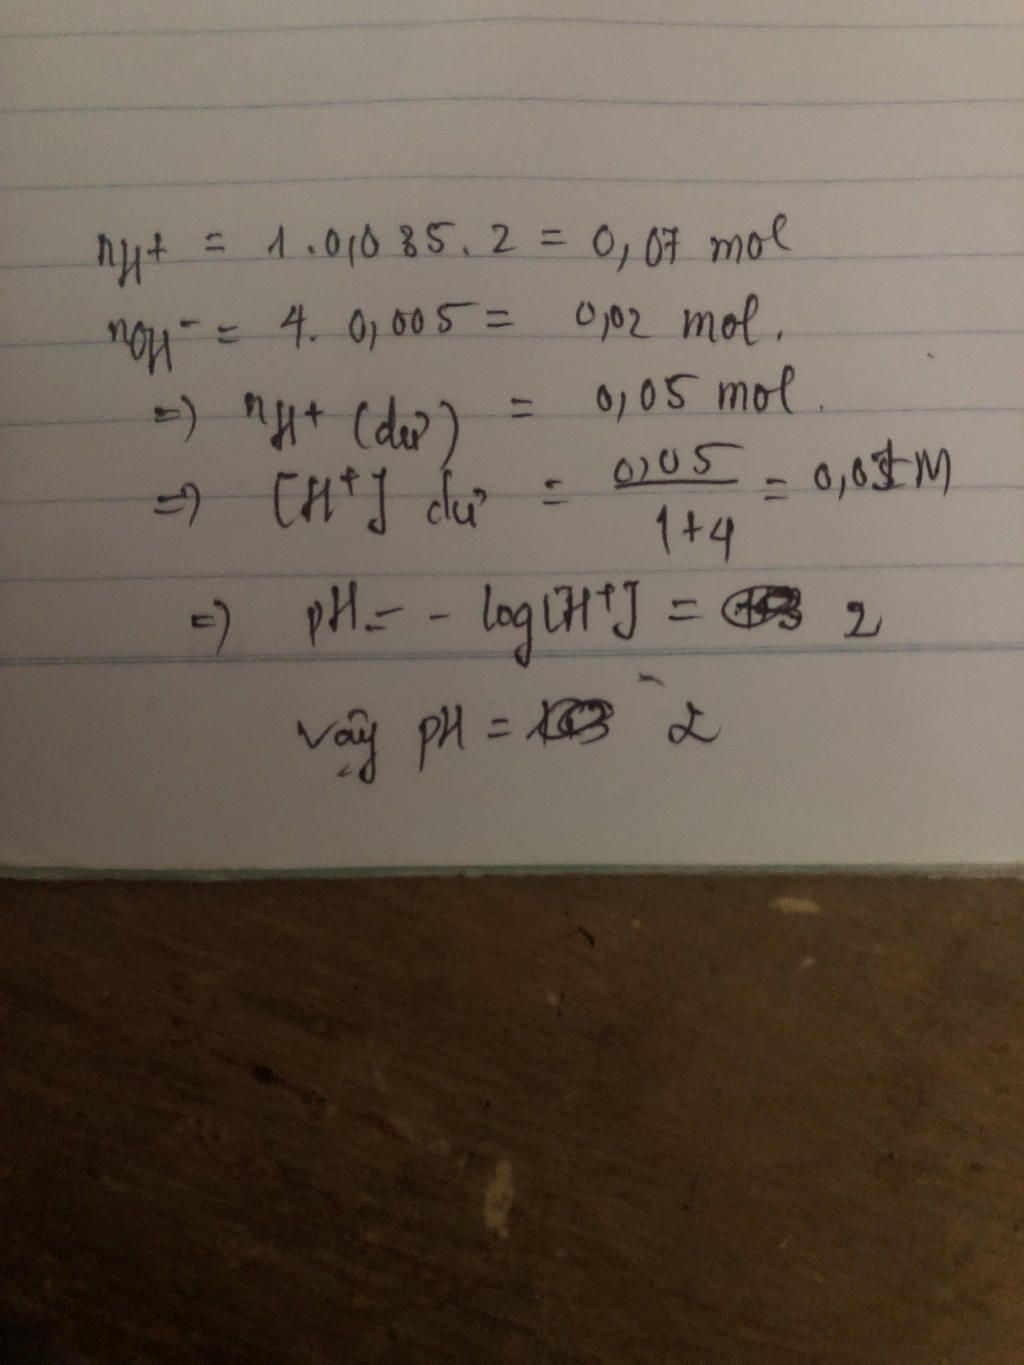 nH+ = 1.0,035.2 = 0,07 mol
nOH- = 4. 0,005 = 0,02 mol.
=> nH+ (dư) = 0,05 mol.
=> [H+] dư = 0,05 / 1+4 = 0,01 M
=> pH = - log[H+] = 2
Vậy pH = 2